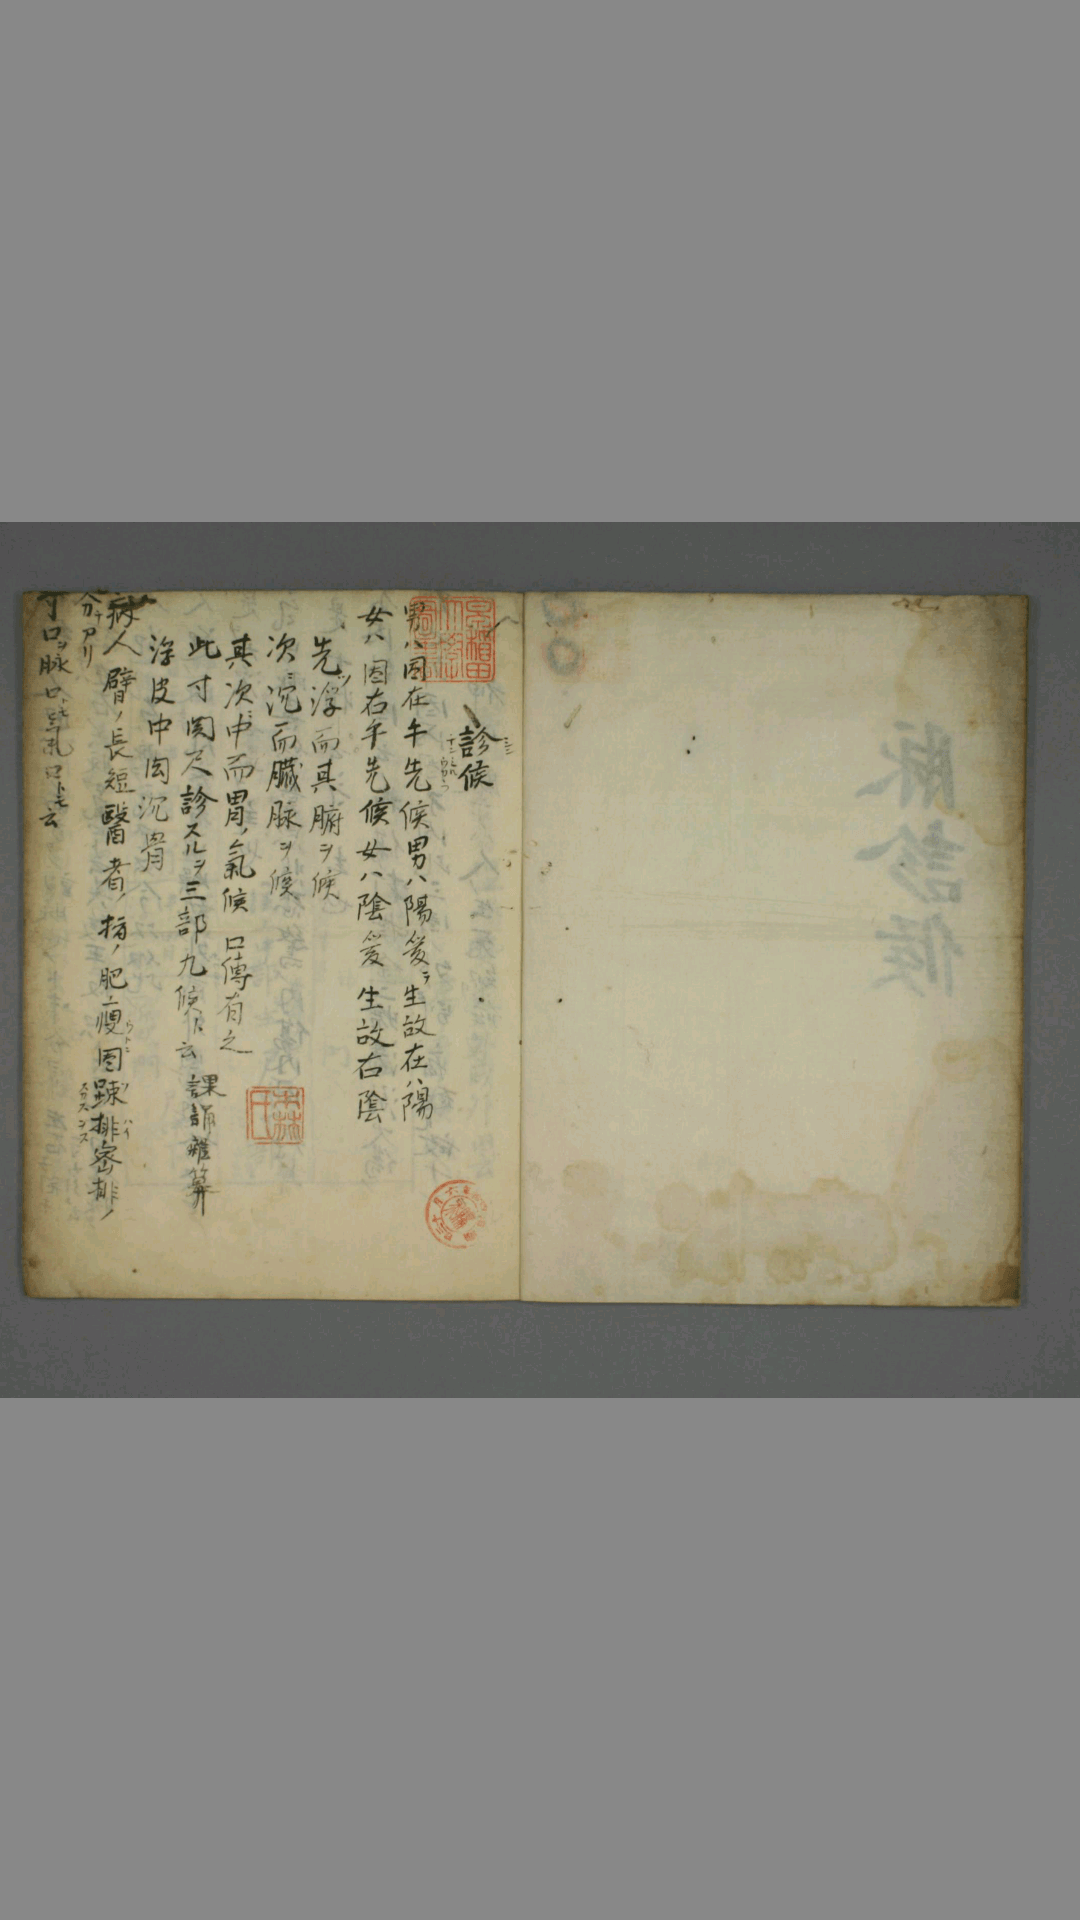 診候
男ハ因在手先候男ハ陽爰ヲ生故在ハ陽
女ハ因右手先候女ハ陰爰生故右陰
先ツ浮而其腑ヲ候
次ニ沉而臓脉ヲ候
其次ニ中而胃ノ氣候 口傳有之
此寸関尺診スルヲ三部九候ト云 課誦難算
浮皮中肉沉骨
病人臂ノ長短醫者ノ指ノ肥瘦因踈排密排ノ
分チアリ
寸口ノ脉口トモ気口トモ云
脉診候